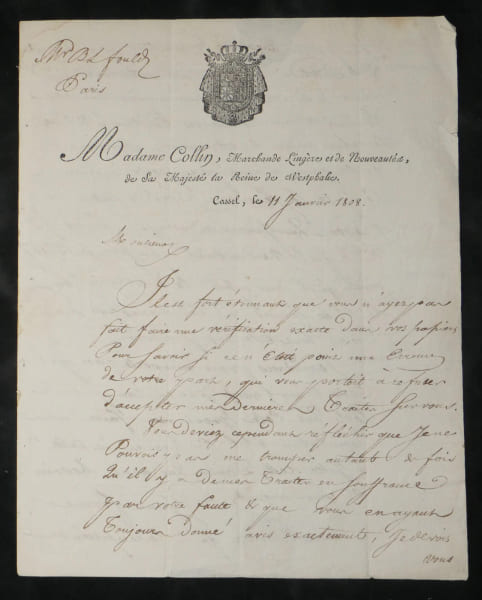 Mr B L fould
Paris
Madame Collin, Marchande Lingère et de Nouveautés,
de Sa Majesté la Reine de Westphalie.
Cassel, le 11 Janvier 1808.
Monsieur
Il est fort étonnant que vous n'ayez pas
fait faire une vérification exacte dans vos papiers
Pour Savoir Si ce n'était point une Erreur
de votre part, qui vous portoit à refuser
d'accepter mes Dernieres Traites Sur vous.
Vous devriez cependant réfléchir que Je ne
Pouvois pas me tromper autant de fois
Qu'il y a de mes Traites en Souffrance
par votre faute & que vous en ayant
Toujours Donné avis exactement, Je devois
vous